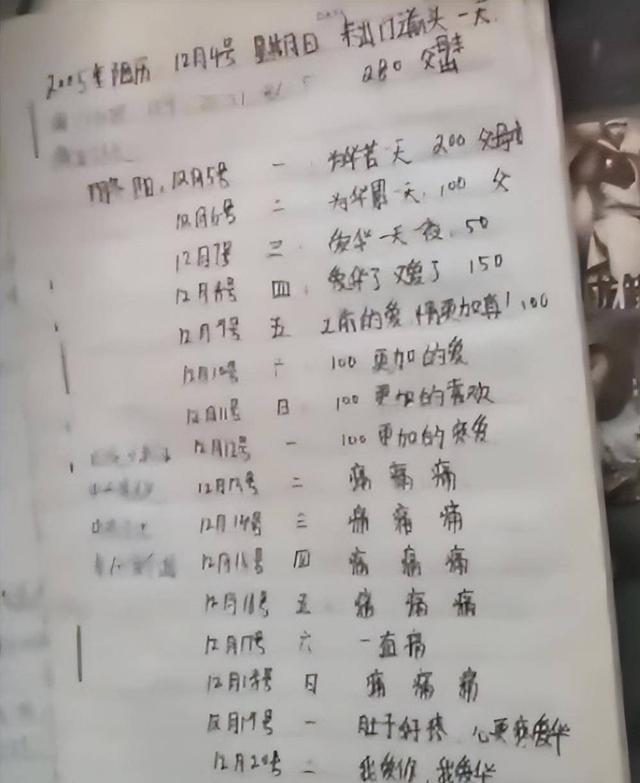 2005年阳历 12月4号 星期日 未出门 痛头一天.
280 父母
阳, 12月5号 一 为华苦一天 200 父母
12月6号 二 为华累一天, 100 父
12月7号 三 爱华一天夜, 50
12月8号 四. 爱华了 又爱了 150
12月9号 五 的爱 情更加真! 100
12月10号 六 100 更加的爱
12月11号 日 100 更加的喜欢
12月12号 一 100 更加的疼爱
12月13号 二 痛 痛 痛
12月14号 三 痛 痛 痛
12月15号 四 痛 痛 痛
12月16号 五 痛 痛 痛
12月17号 六 一直痛
12月18号 日 痛 痛 痛
12月19号 一 肚子好疼 心更疼爱华
12月20号 二 我爱你, 我爱华